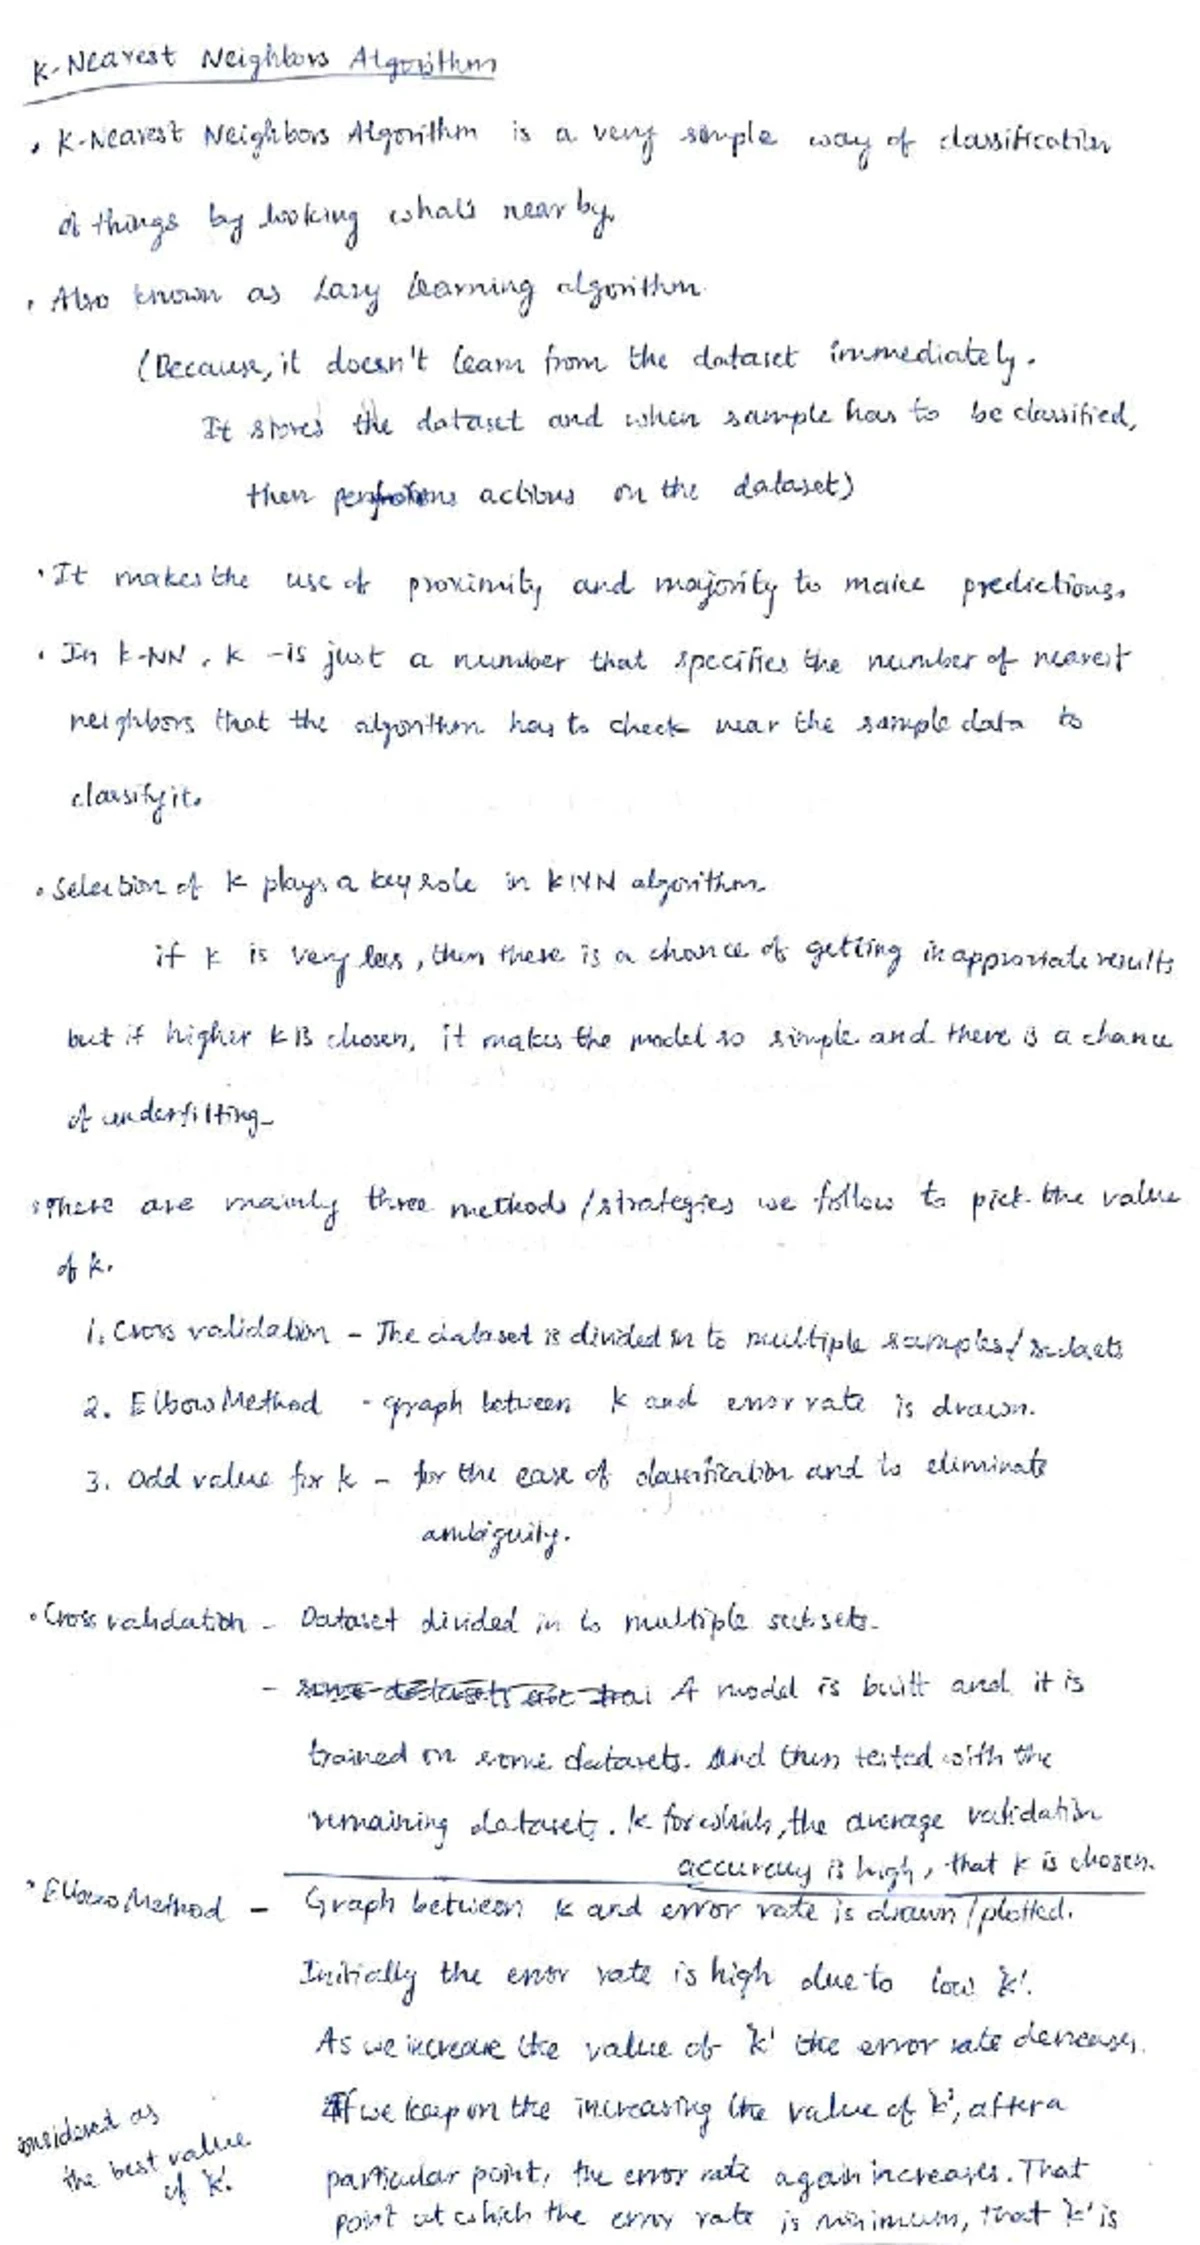 K-Nearest Neighbors Algorithm
• K-Nearest Neighbors Algorithm is a very simple way of classification
of things by looking what's near by.
• Also known as Lazy learning algorithm
(Because, it doesn't learn from the dataset immediately.
It stores the dataset and when sample has to be classified,
then performs actions on the dataset)
• It makes the use of proximity and majority to make predictions.
• In k-NN, k - is just a number that specifies the number of nearest
neighbors that the algorithm has to check near the sample data to
classify it.
• Selection of k plays a key role in KNN algorithm
if k is very less, then there is a chance of getting inappropriate results
but if higher k is chosen, it makes the model so simple and there is a chance
of underfitting
• There are mainly three methods/strategies we follow to pick the value
of k.
1. Cross validation - The dataset is divided in to multiple samples/subsets
2. Elbow Method - graph between k and error rate is drawn.
3. Odd value for k - for the case of classification and to eliminate
ambiguity.
• Cross validation - Dataset divided in to multiple subsets.
- A model is built and it is
trained on some datasets. And then tested with the
remaining datasets. k for which, the average validation
accuracy is high, that k is chosen.
• Elbow Method - Graph between k and error rate is drawn/plotted.
Initially the error rate is high due to low 'k'.
As we increase the value of 'k' the error rate decreases.
If we keep on the increasing the value of 'k', after a
particular point, the error rate again increases. That
point at which the error rate is minimum, that 'k' is
considered as
the best value
of 'k'.